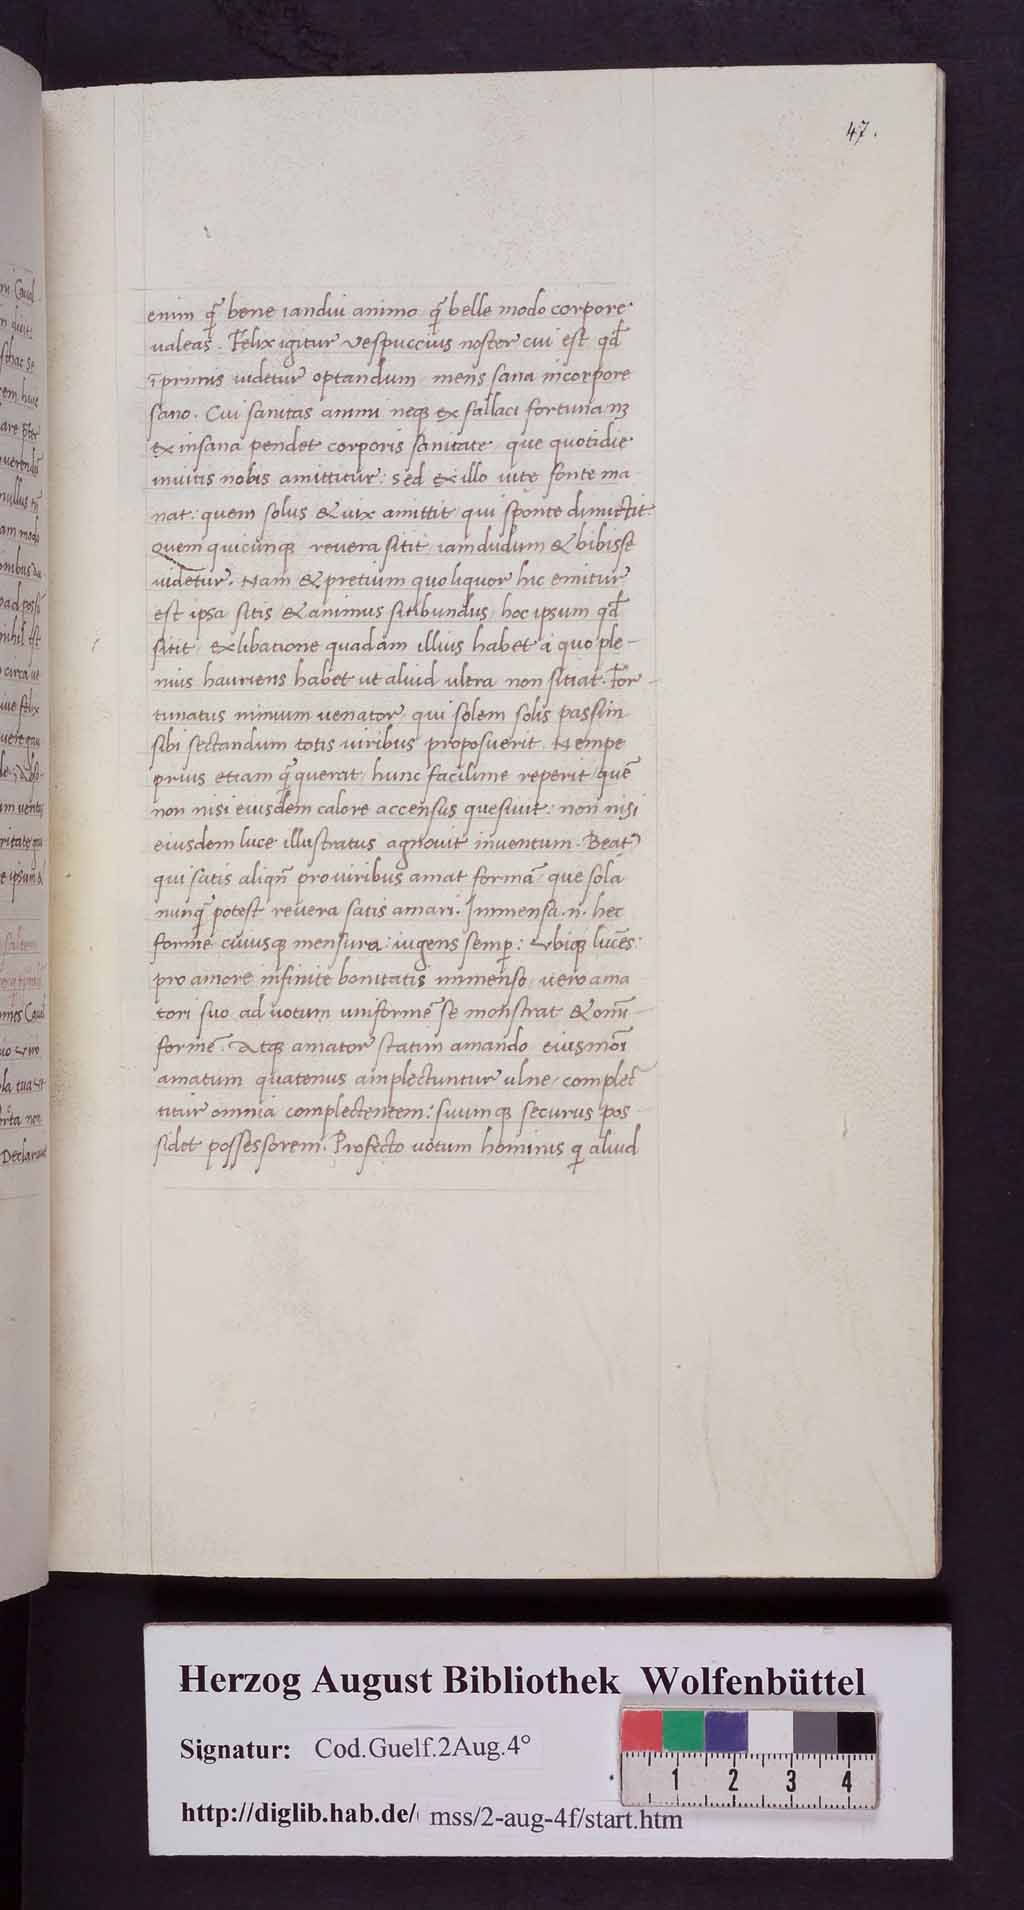 47.
enim q̃ bene iandiu animo q̃ belle modo corpore
ualeas. Felix igitur Vespuccius noster cui est qđ
ĩprimis uidetur optandum mens sana in corpore
sano. Cui sanitas animi neqꝫ ex fallaci fortuna nꝫ
ex insana pendet corporis sanitate, que quotidie
inuitis nobis amittitur: sed ex illo uite fonte ma
nat: quem solus & uix amittit qui sponte dimictit.
Quem quicunqꝫ reuera sitit iamdudum & bibisse
uidetur. Nam & pretium quo liquor hic emitur
est ipsa sitis & animus sitibundus, hoc ipsum qđ
sitit, ex libatione quadam illius habet a quo ple-
nius hauriens habet ut aliud ultra non sitiat. For-
tunatus nimium uenator qui solem solis passim
sibi sectandum totis uiribus proposuerit. Nempe
prius etiam q̃ querat, hunc facilime reperit quẽ
non nisi eiusdem calore accensus quesiuit: non nisi
eiusdem luce illustratus agnouit inuentum. Beatꝰ
qui satis aliqñ pro uiribus amat formã, que sola
nunq̃ potest reuera satis amari. Immensa .n. hec
forme cuiusqꝫ mensura: iugens semꝑ: & ubiqꝫ lucẽs:
pro amore infinite bonitatis immenso, uero ama
tori suo ad uotum uniformẽ se monstrat & omĩ-
formẽ. Atqꝫ amator statim amando eiusmõi
amatum quatenus amplectuntur ulne, complec̃
titur omnia complectentem: suumqꝫ securus pos
sidet possessorem. Profecto uotum hominis q aliud
Herzog August Bibliothek Wolfenbüttel
Signatur: Cod.Guelf.2Aug.4°
1 2 3 4
http://diglib.hab.de/ mss/2-aug-4f/start.htm